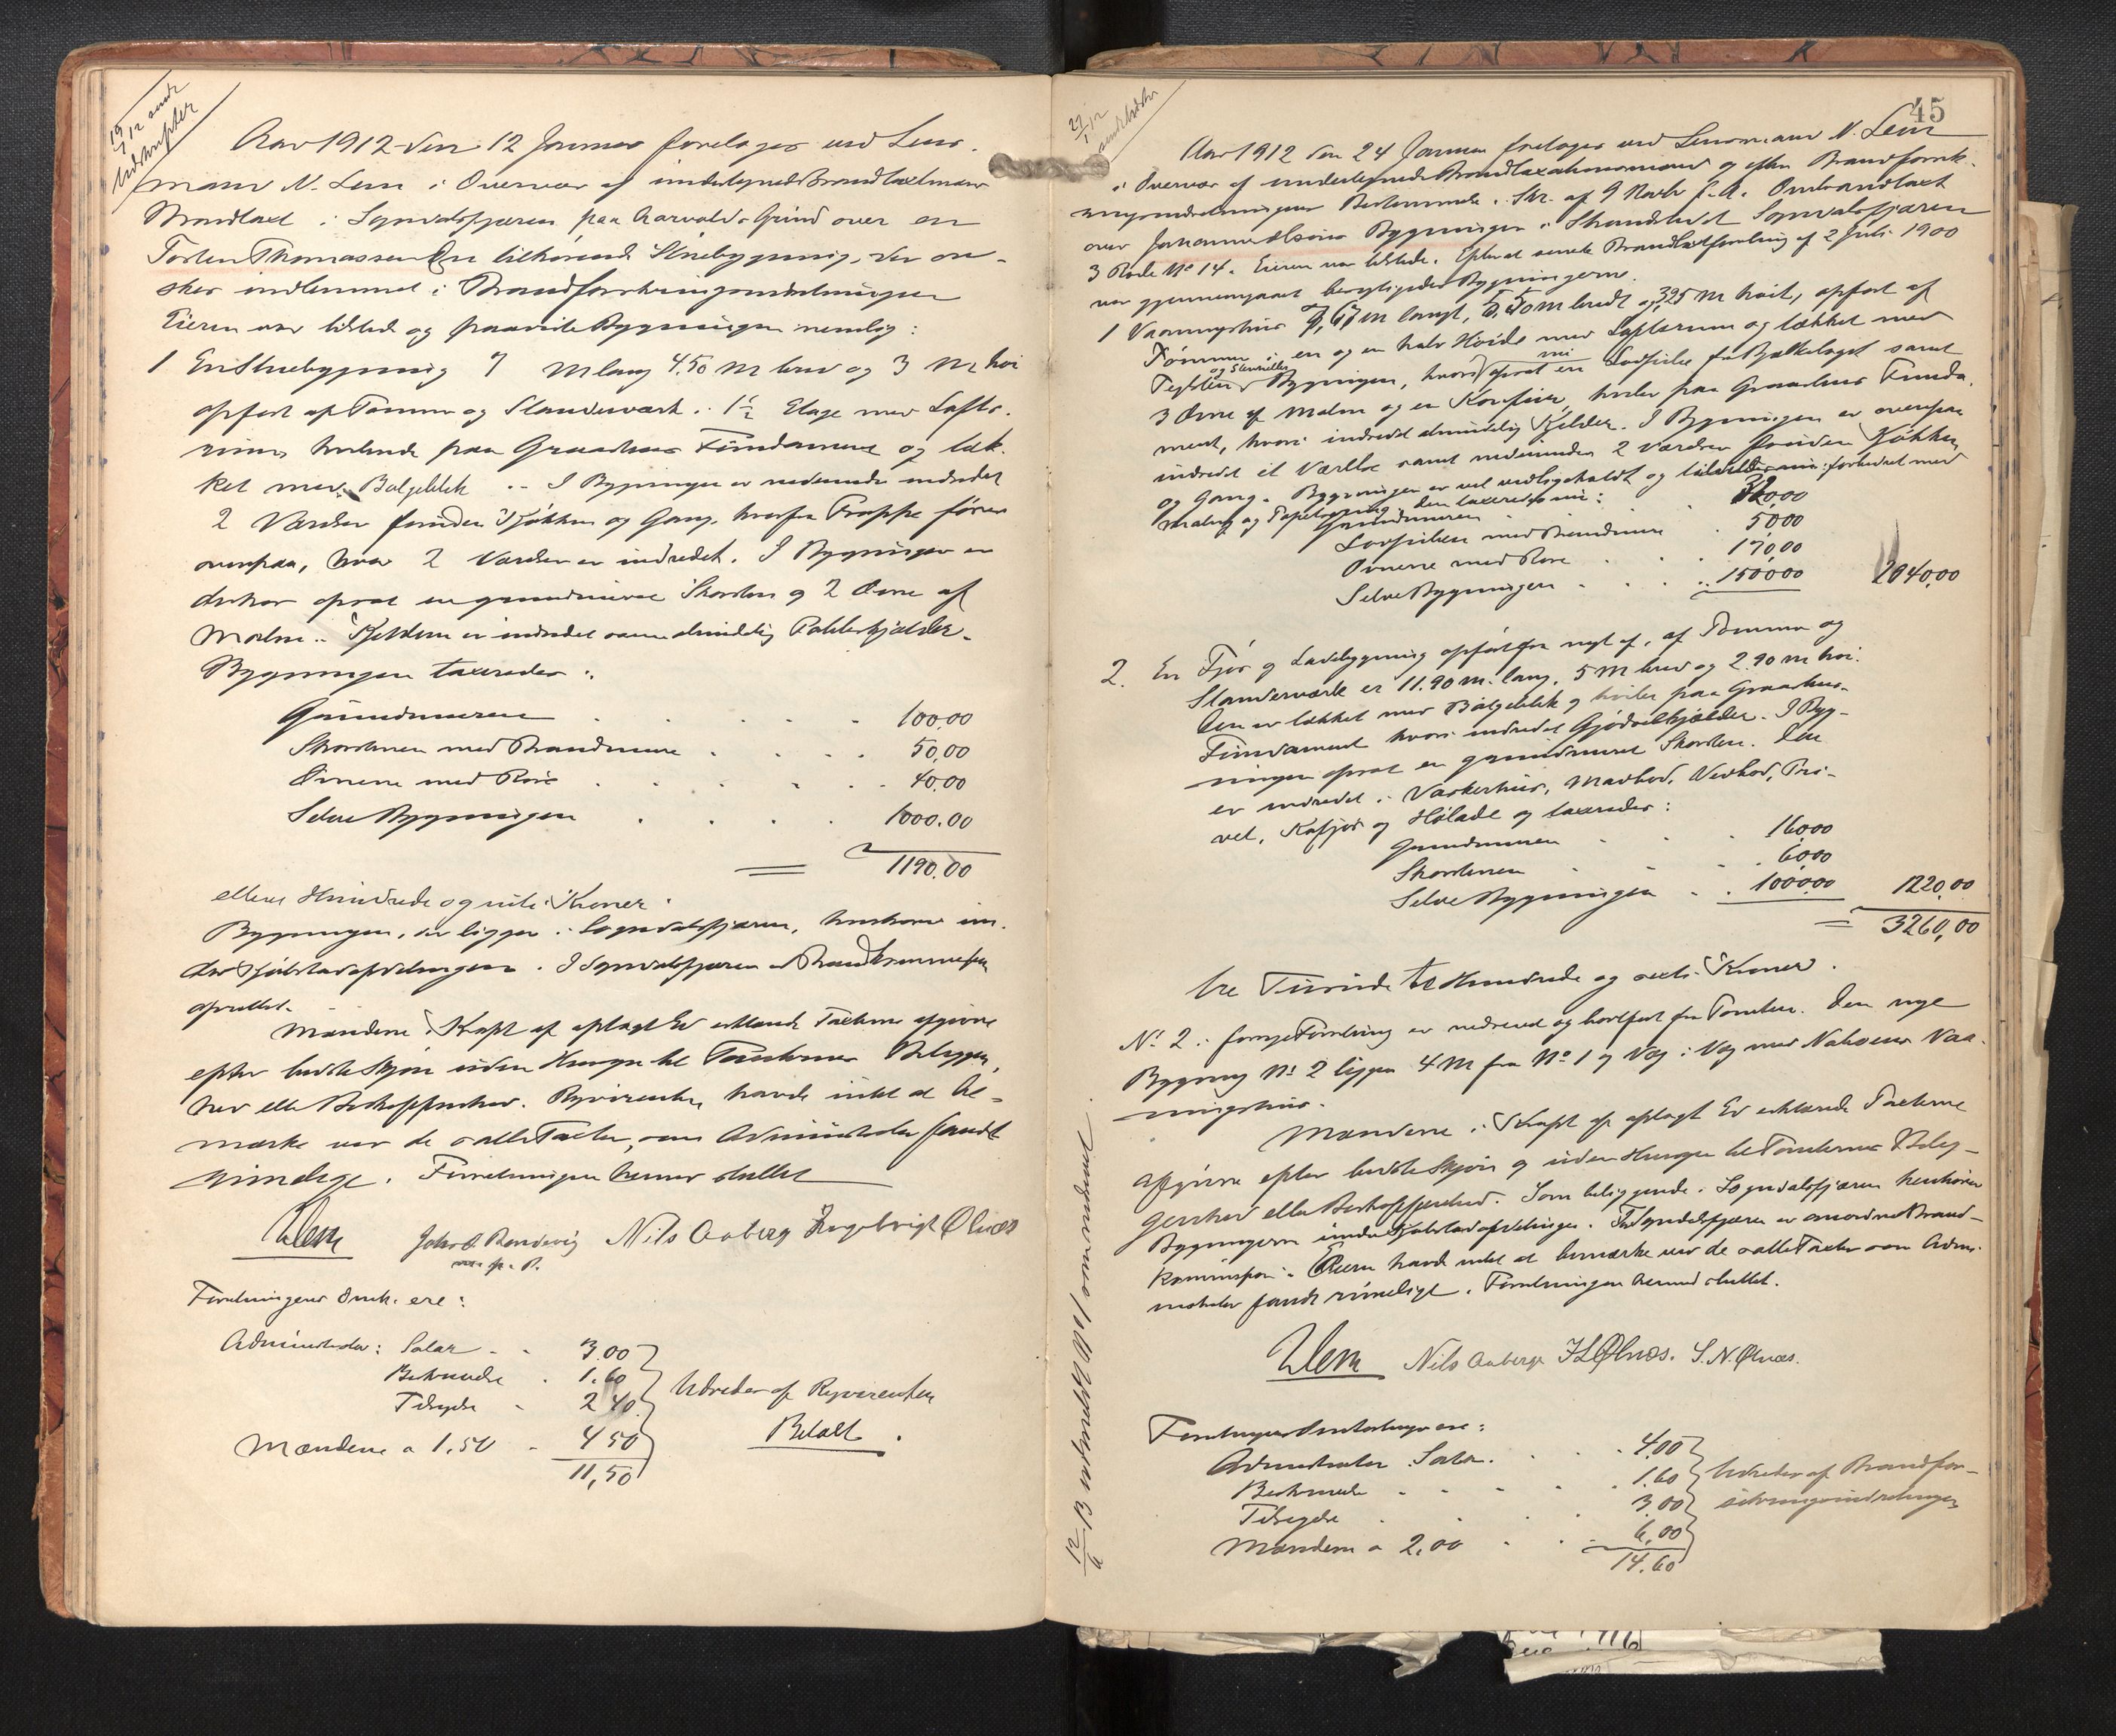 19/1 12 sendt
Udskrifter
Aar 1912 den 12 Januar foretoges ved Lens-
mand N. Lem i Overvær af undertegnede Brandtaxtmænd
Brandtaxt i Sogndalsfjæren paa Harvalds Grund over en
Torsten Thomassen tilhørende Stuebygning, der øn-
skes indlemmet i Brandforsikringsindretningen
Eieren var tilsted og paaviste Bygningen nemlig:
1 En Stuebygning 7 M lang 4.50 M bred og 3 M høi
opført af Tømmer og Standerværk i 1½ Etage med Lofts-
rum, hvilende paa Graastens Fundament og tæk-
ket med Bølgeblik. I Bygningen er nedenunder indredet
2 Værelser foruden Kjøkken og Gang, hvorfra Trappe fører
ovenpaa, hvor 2 Værelser er indredet. I Bygningen er
desuden opsat en grundmuret Skorsten og 2 Ovne af
Malm. Kjelderen er indredet som almindelig Potetkjælder.
Bygningen taxeredes:
Grundmuren . . . . . 100.00
Skorstenen med Brandmure . . . . 50,00
Ovnene med Rør . . . . . 40.00
Selve Bygningen . . . . 1000.00
1190.00
elleve Hundrede og niti Kroner.
Bygningen, der ligger i Sogndalsfjæren, henhører un-
der Kjøbstadafdelingen. I Sogndalsfjæren er Brandkommission
oprettet.
Mændene i Kraft af aflagt Ed erklærede Taxterne afgivne
efter bedste Skjøn uden Hensyn til Tomternes Beliggen-
hed eller Beskaffenhed. Rekvirenten havde intet at be-
mærke ved de satte Taxter, som Administrator fandt
rimelige. Forretningen hermed sluttet
NLem John O. Rendevig Nils Aaberge Ingebrigt Ølnæs
m. p. P.
Forretningens Omk. ere:
Administrator: Salær . . 3.00
Beskrivelse . 1.60
Tilsyelse . 2 40
Mændene a 1.50 . 4 50
11,50
Udredes af Rekvirenten
Betalt.
45
27/1 12
sendt Udskr
Aar 1912 den 24 Januar foretoges ved Lensmand N. Lem
i Overvær af undertegnede Brandtaxationsmænd og efter Brandforsik-
ringsindretningens Bestemmelse i Skr. af 9 Novbr f. A. Ombrandtaxt
over Johannes Olsens Bygninger i Strandstedet Sogndalsfjæren
3 Rode No 14. Eieren var tilstede. Efterat seneste Brandtaxtforretning af 2 Juli 1900
var gjennemgaaet besigtigedes Bygningerne.
1 Vaaningshus 7,67 m langt, 5,50 m bredt og 3,25 m høit, opført af
Tømmer i en og en halv Høide med Loftsrum og tækket med
Teglsten og Stenheller. Bygningen, hvori opsat en ny Lodpibe fra Bjælkelaget samt
3 Ovne af Malm og en Komfur, hviler paa Graastens Funda-
ment, hvori indredet almindelig Kjelder. I Bygningen er ovenpaa
indredet et Værelse samt nedenunder 2 Værelser foruden Kjøkken
og Gang. Bygningen er vel vedligeholdt og forbedret med
Maling og Tapetsering. Den taxeredes nu:
Grundmuren . . 32000
Lodpiben med Brandmure . 5000
Ovnene med Rør . . . 170,00
Selve Bygningen . . . 150000 2040,00
2. En Fjøs og Ladebygning opført fra nyt af, af Tømmer og
Standerværk er 11.90 m. lang, 5 m bred og 2.90 m høi.
Den er tækket med Bølgeblik og hviler paa Graastens-
Fundament hvori indredet Gjødselkjælder. I Byg-
ningen opsat en grundmuret Skorsten. Den
er indredet i Vaskerhus, Madbod, Vedbod, Pri-
vet, Kofjøs og Hølade og taxeredes:
Grundmuren . . . 16000
Skorstenen . . . 6000
Selve Bygningen . . 100000 1220,00
3260,00
tre Tusinde to Hundrede og seksti Kroner.
No 2 i forrige Forretning er nedrevet og bortført fra Tomten. Den nye
Bygning No 2 ligger 4 M fra No 1 og Væg i Væg med Naboens Vaa-
ningshus.
Mændene i Kraft af aflagt Ed erklærede Taxterne
afgivne efter bedste Skjøn og uden Hensyn til Tomternes Belig-
genhed eller Beskaffenhed. Som beliggende i Sogndalsfjæren henhører
Bygningerne under Kjøbstadafdelingen. I Sogndalsfjæren er anordnet Brand-
kommission. Eieren havde intet at bemærke ved de satte Taxter som Admi-
nistrator fandt rimeligt. Forretningen hermed sluttet.
NLem Nils Aaberge I L Ølnæs. S. N. Ølnæs.
Forretningens Omkostninger ere:
Administrator Salær. . . . 4.00
Beskrivelse . . . . 1.60
Tilsyelse . . . 3.00
Mændene a 2,00 . . 6,00
14.60
Udredes af Brandfor-
sikringsindretningen
12/6 13 No 1 som nedrevet